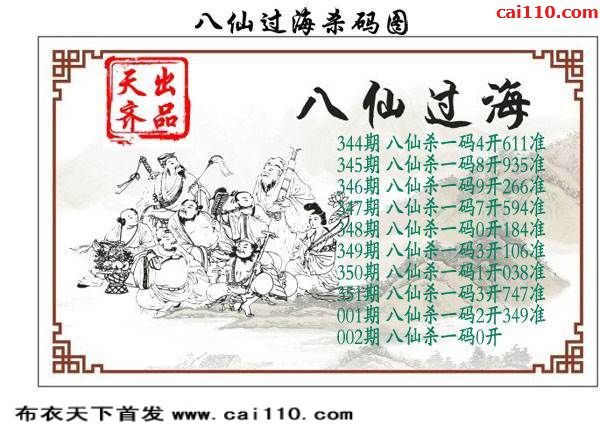 八仙过海杀码图
cai110.com
天齐出品
八仙过海
344期 八仙杀一码4开611准
345期 八仙杀一码8开935准
346期 八仙杀一码9开266准
347期 八仙杀一码7开594准
348期 八仙杀一码0开184准
349期 八仙杀一码3开106准
350期 八仙杀一码1开038准
351期 八仙杀一码3开747准
001期 八仙杀一码2开349准
002期 八仙杀一码0开
布衣天下首发 www.cai110.com